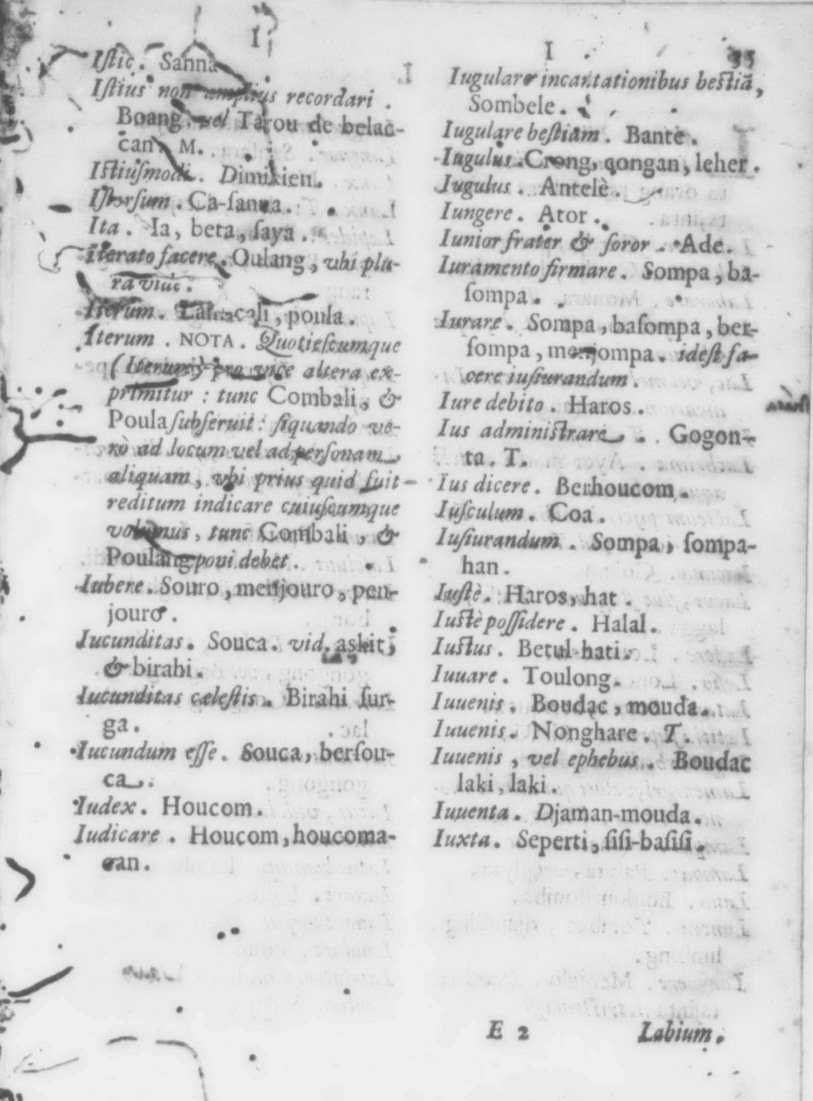 I
Istic. Sanna
Istius non amplius recordari.
Boang. vel Tarou de belac-
can. M.
Istiusmodi. Dimikien.
Istorsum. Ca-sanna.
Ita. Ia, beta, saya.
Iterato facere. Oulang, vbi plu-
ra vide.
Iterum. Lafacali, poula.
Iterum. NOTA. Quotiescumque
(Iterum) pro vice altera ex-
primitur: tunc Combali, &
Poula subseruit: siquando ve-
rò ad locum vel ad personam
aliquam, vbi prius quid fuit
reditum indicare cuiuscumque
volumus, tunc Combali, &
Poulang poni debet.
Iubere. Souro, menjouro, pen-
jouro.
Iucunditas. Souca. vid. askit,
& birahi.
Iucunditas cælestis. Birahi sur-
ga.
Iucundum esse. Souca, bersou-
ca.
Iudex. Houcom.
Iudicare. Houcom, houcoma-
can.
I
35
Iugulare incantationibus bestiã,
Sombele.
Iugulare bestiam. Bantè.
Iugulus. Crong, qongan, leher.
Iugulus. Antelè.
Iungere. Ator.
Iunior frater & soror. Ade.
Iuramento firmare. Sompa, ba-
sompa.
Iurare. Sompa, basompa, ber-
sompa, menjompa. idest fa-
cere iusiurandum.
Iure debito. Haros.
Ius administrare. Gogon-
ta. T.
Ius dicere. Berhoucom.
Iusculum. Coa.
Iusiurandum. Sompa, sompa-
han.
Iustè. Haros, hat.
Iustè possidere. Halal.
Iustus. Betul-hati.
Iuuare. Toulong.
Iuuenis. Boudac, mouda.
Iuuenis. Nonghare. T.
Iuuenis, vel ephebus. Boudac
laki, laki.
Iuuenta. Djaman-mouda.
Iuxta. Seperti, sisi-basisi.
E 2
Labium.